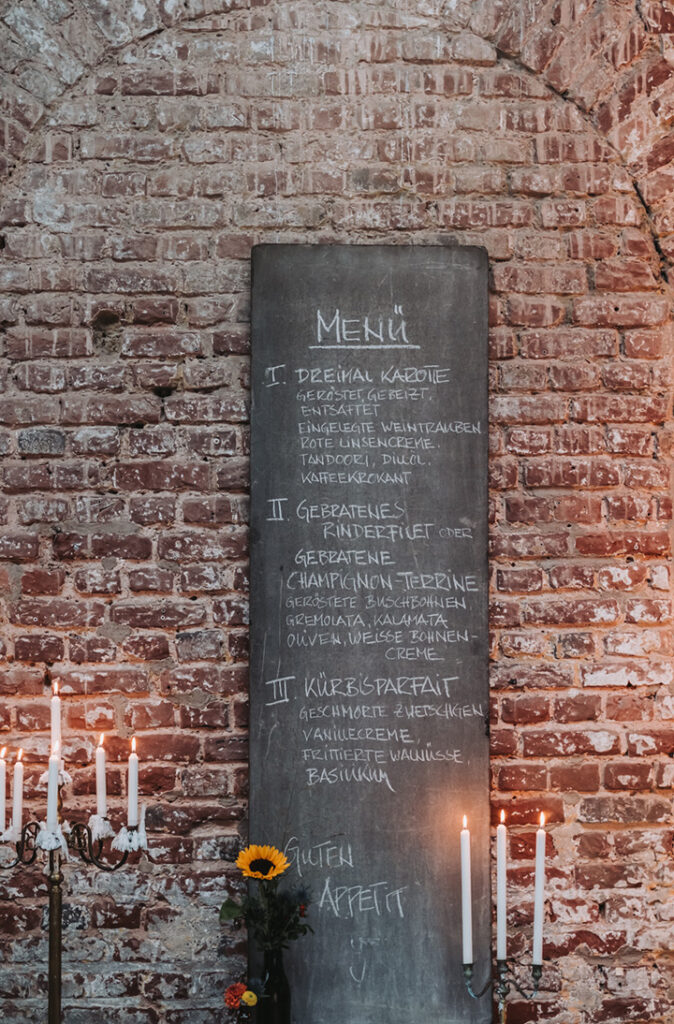 MENÜ
I. DREIMAL KAROTTE
GERÖSTET, GEBEIZT,
ENTSAFTET
EINGELEGTE WEINTRAUBEN
ROTE LINSENCREME.
TANDOORI, DILLÖL.
KAFFEEKROKANT
II. GEBRATENES
RINDERFILET ODER
GEBRATENE
CHAMPIGNON-TERRINE
GERÖSTETE BUSCHBOHNEN
GREMOLATA, KALAMATA
OLIVEN, WEISSE BOHNEN-
CREME
III KÜRBISPARFAIT
GESCHMORTE ZWETSCHGEN
VANILLECREME,
FRITTIERTE WALNÜSSE,
BASILIKUM
GUTEN
APPETIT